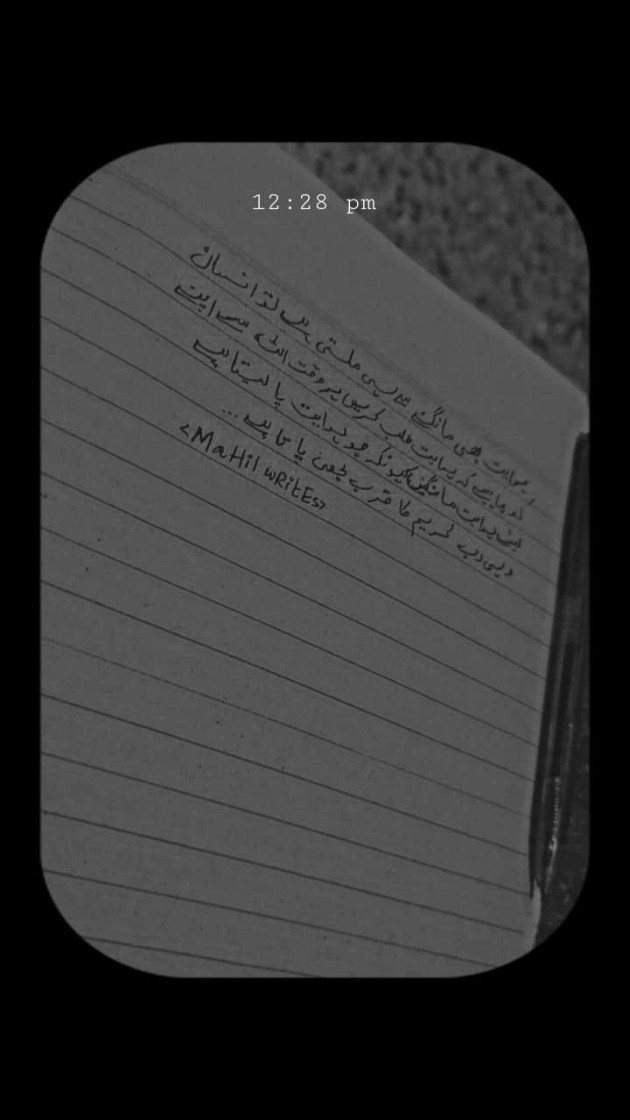 12:28 pm
ہدایت بھی مانگنے سے ہی ملتی ہیں تو انسان
کو چاہیں کہ ہدایت طلب کریں ہر وقت اللہ سے اپنے
لیے ہدایت مانگیں کیونکہ جو ہدایت پا لیتا ہیں
وہی رب کریم کا قرب بھی پاتا ہیں...
<MaHil wRitEs>